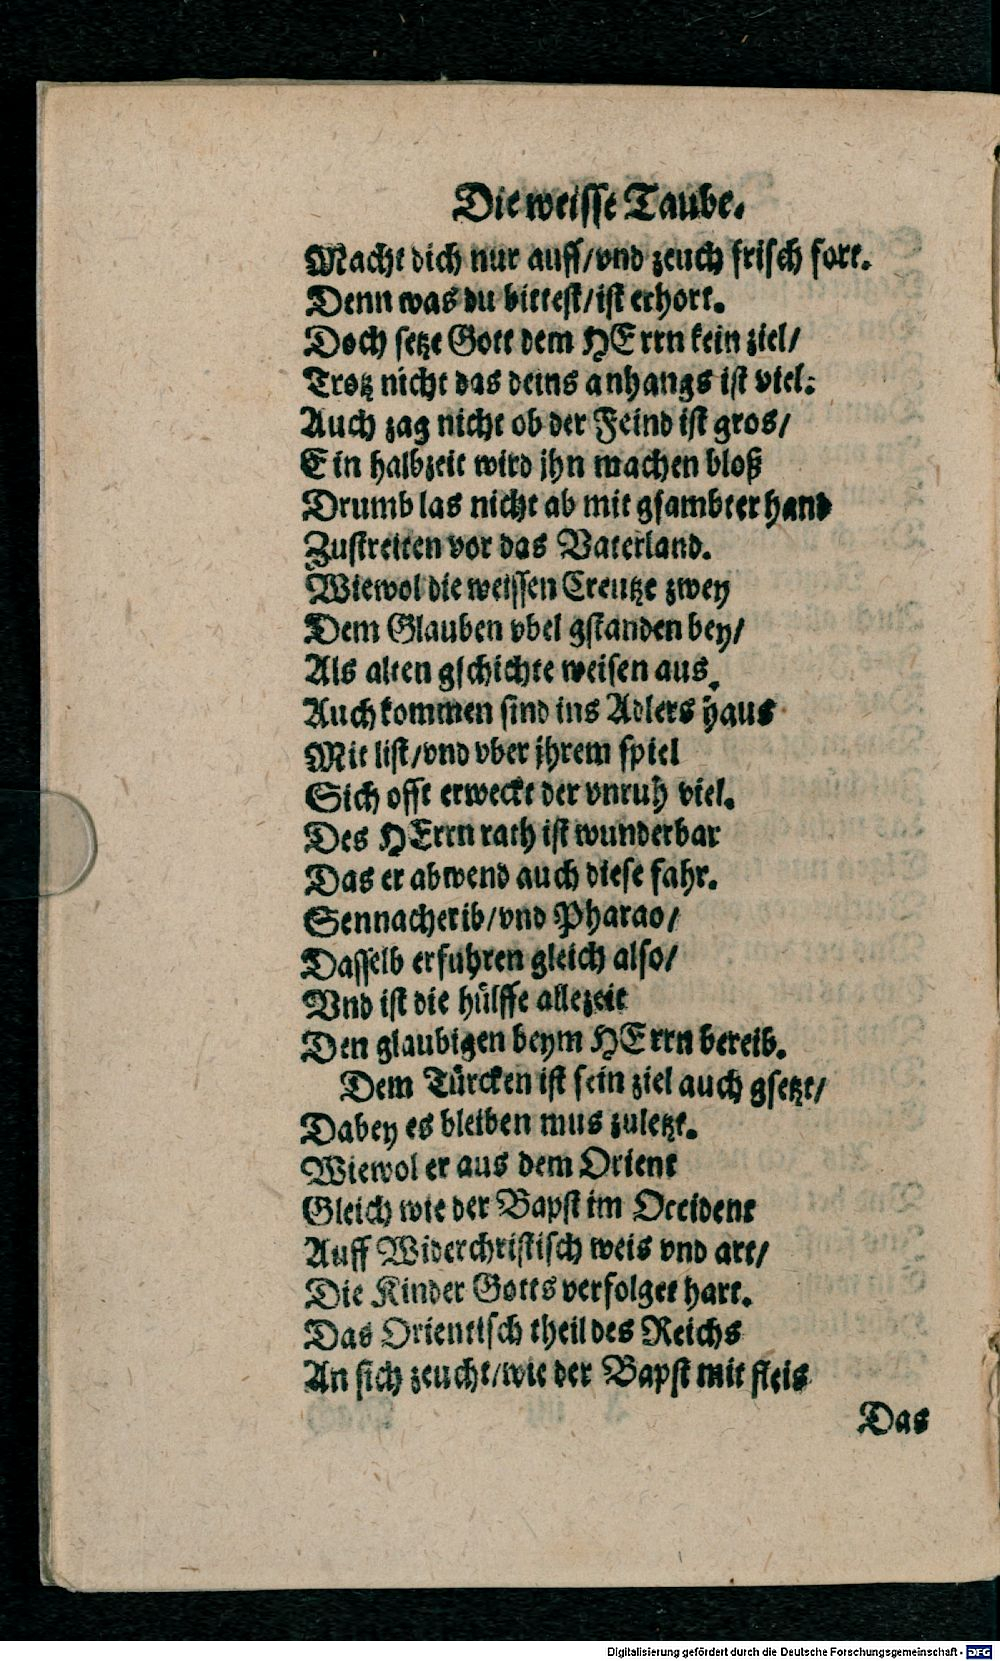 Die weisse Taube.
Macht dich nur auff/vnd zeuch frisch fort.
Denn was du bittest/ist erhort.
Doch setze Gott dem HErrn kein ziel/
Trotz nicht das deins anhangs ist viel:
Auch zag nicht ob der Feind ist gros/
Ein halbzeit wird jhn machen bloß
Drumb las nicht ab mit gsambter hand
Zustreiten vor das Vaterland.
Wiewol die weissen Creutze zwey
Dem Glauben vbel gstanden bey/
Als alten gschichte weisen aus.
Auch kommen sind ins Adlers haus
Mit list/vnd vber jhrem spiel
Sich offt erweckt der vnruh viel.
Des HErrn rath ist wunderbar
Das er abwend auch diese fahr.
Sennacherib/vnd Pharao/
Dasselb erfuhren gleich also/
Vnd ist die hülffe allezeit
Den glaubigen beym HErrn bereib.
Dem Türcken ist sein ziel auch gsetzt/
Dabey es bleiben mus zuletzt.
Wiewol er aus dem Orient
Gleich wie der Bapst im Occident
Auff Widerchristisch weis vnd art/
Die Kinder Gotts verfolget hart.
Das Orientisch theil des Reichs
An sich zeucht/wie der Bapst mit fleis
Das
Digitalisierung gefördert durch die Deutsche Forschungsgemeinschaft - DFG